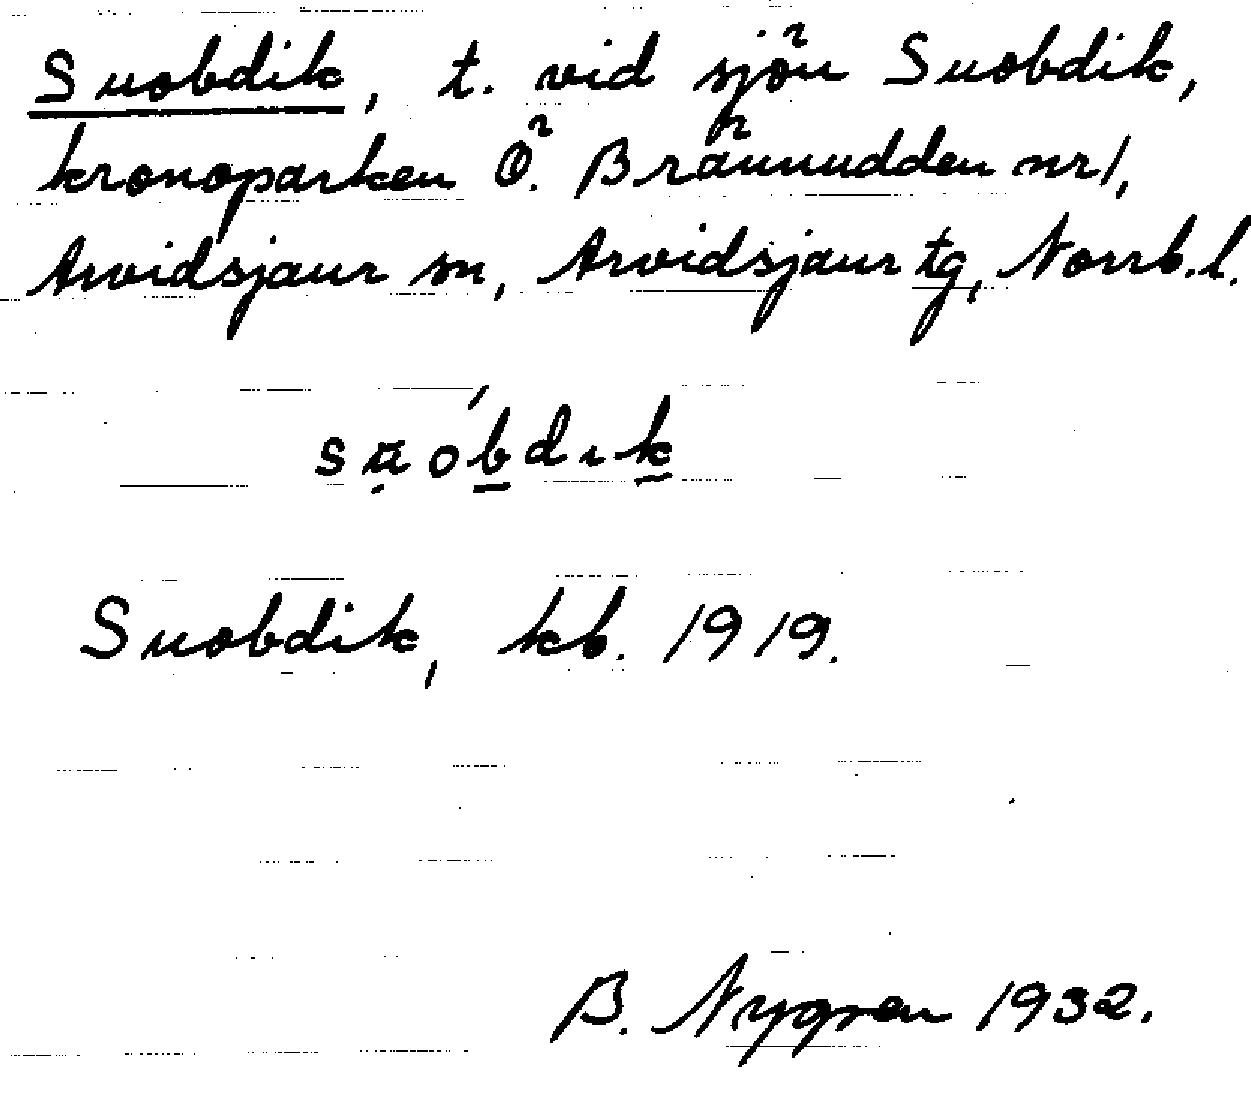 Suobdik, t. vid sjön Suobdik,
kronoparken Ö. Brännudden nr 1,
Arvidsjaur sn, Arvidsjaur tg, Norrb. l.
Suobdik, kb. 1919.
B. Nygren 1932.